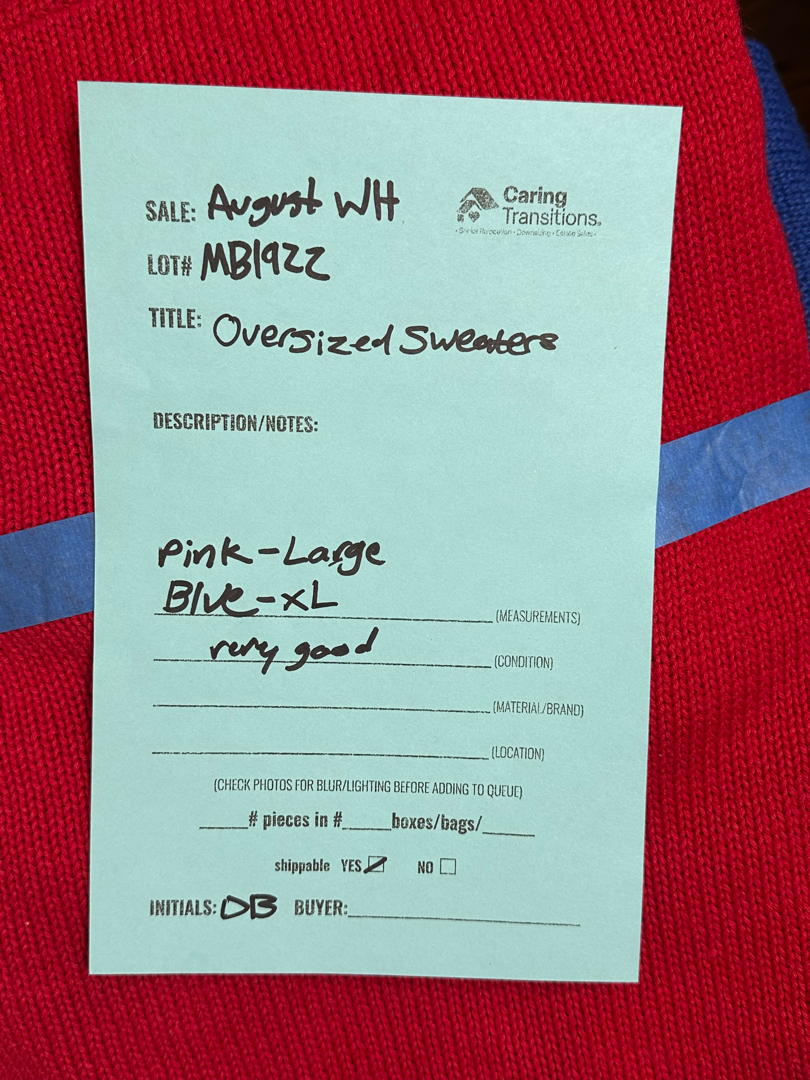 SALE: August WH
Caring
Transitions.
• Senior Relocation • Downsizing • Estate Sales •
LOT# MB1922
TITLE: Oversized Sweaters
DESCRIPTION/NOTES:
Pink - Large
Blue - XL (MEASUREMENTS)
very good (CONDITION)
(MATERIAL/BRAND)
(LOCATION)
(CHECK PHOTOS FOR BLUR/LIGHTING BEFORE ADDING TO QUEUE)
____# pieces in #____boxes/bags/____
shippable YES NO
INITIALS: DB BUYER: